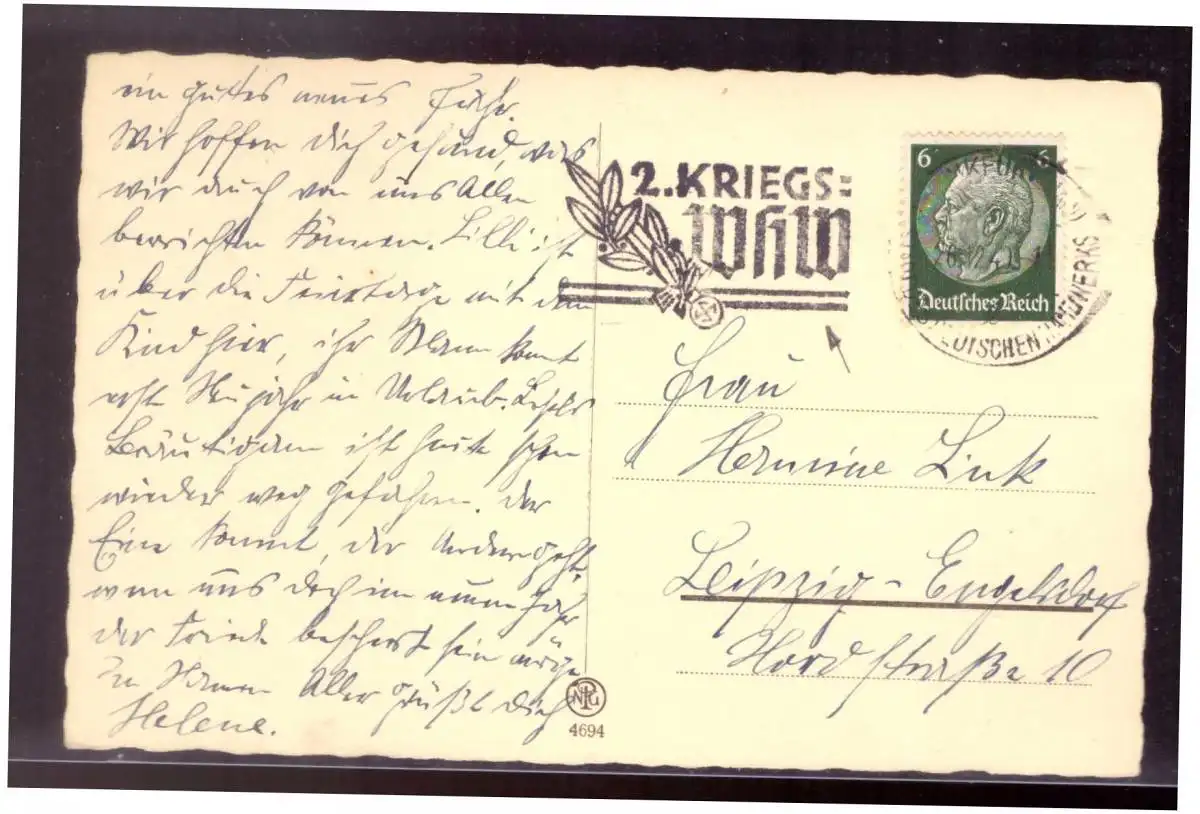 ein gutes neues Jahr.
Wir hoffen dich gesund, was
wir auch von uns Allen
berichten können. Lilli ist
über die Feiertage mit dem
Kind hier, ihr Mann kommt
erst Neujahr in Urlaub.
Bräutigam ist heute schon
wieder weg gefahren. der
Eine kommt, der Andere geht,
wenn uns doch im neuen Jahr
der Friede beschert sein möge
In Namen Aller grüßt dich
Helene.
2. KRIEGS=
WHW
6 6
Deutsches Reich
DEUTSCHEN HANDWERKS
Frau
Hermine Link
Leipzig - Engelsdorf
Nordstraße 10
NPG
4694